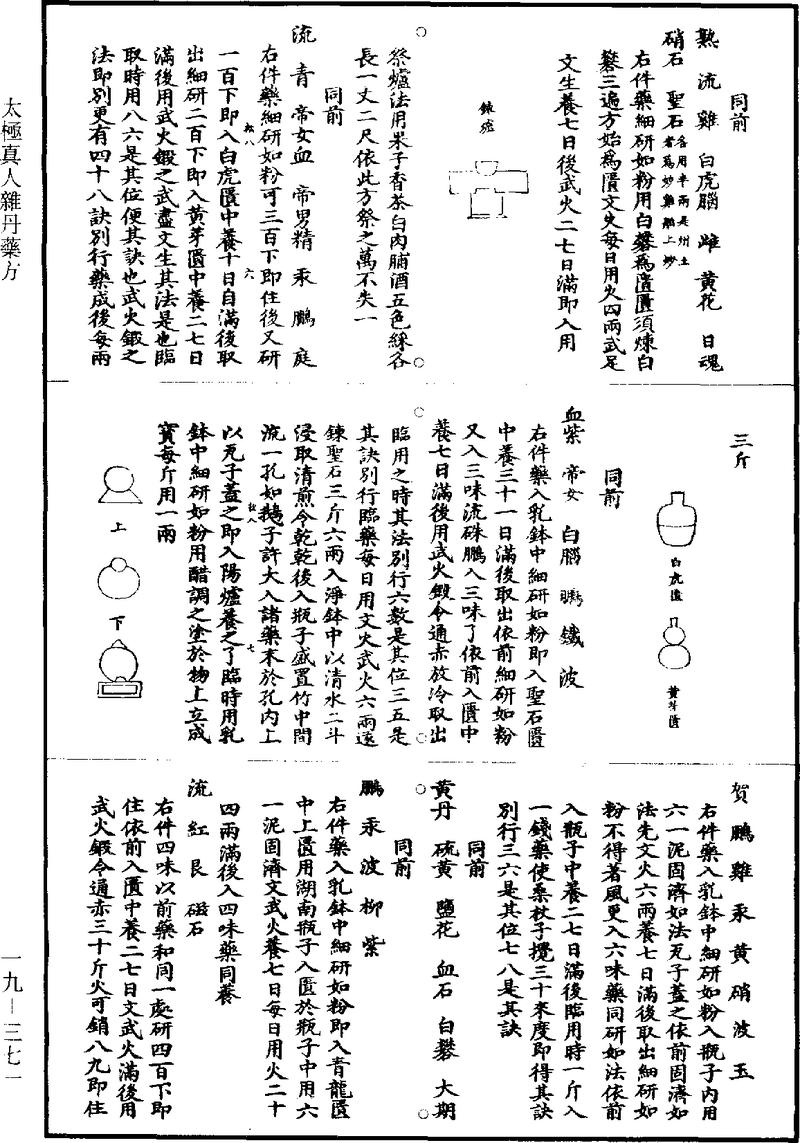 同前
熟流雞　白虎腦　雌黃花　日魂
硝石　聖石各用半兩是州土者為妙雞雌上妙
右件藥細研如粉用白礬為匱匱須煉白
礬三遍方始為匱文火每日用火四兩武足
文生養七日後武火二七日滿即入用
鍊爐
祭爐法用果子香茶白肉脯酒五色綵各
長一丈二尺依此方祭之萬不失一
同前
流　青　帝女血　帝男精　汞　鵬　庭
右件藥細研如粉可三百下即住後又研
一百下即入白虎匱中養十日自滿後取
訟八　六
出細研二百下即入黃芽匱中養二七日
滿後用武火鍛之武盡文生其法是也臨
取時用八六是其位便其訣也武火鍛之
法即別更有四十八訣別行藥成後每兩
三斤
白虎匱
黃芽匱
同前
血紫　帝女　白腦　鵬　鐵　波
右件藥入乳鉢中細研如粉即入聖石匱
中養三十一日滿後取出依前細研如粉
又入三味流硃鵬入三味了依前入匱中
養七日滿後用武火鍛令通赤放冷取出
臨用之時其法別行六數是其位三五是
其訣別行臨藥每日用文火武火六兩遠
鍊聖石三斤六兩入淨鉢中以清水二斗
浸取清煎令乾乾後入瓶子盛置竹中間
流一孔如鵝子許大入諸藥末於孔內上
訟八　七
以瓦子蓋之即入陽爐養之了臨時用乳
鉢中細研如粉用醋調之塗於物上立成
寶每斤用一兩
上
下
賀　鵬　雞　汞　黃　硝　波　玉
右件藥入乳鉢中細研如粉入瓶子內用
六一泥固濟如法瓦子蓋之依前固濟如
法先文火六兩養七日滿後取出細研如
粉不得著風更入六味藥同研如法依前
入瓶子中養二七日滿後臨用時一斤入
一錢藥使桑杖子攪三十來度即得其訣
別行三六是其位七八是其訣
同前
黃丹　硫黃　鹽花　血石　白礬　大期
同前
鵬　汞　波　柳　紫
右件藥入乳鉢中細研如粉即入青龍匱
中上匱用湖南瓶子入匱於瓶子中用六
一泥固濟文武火養七日每日用火二十
四兩滿後入四味藥同養
流　紅　艮　磁石
右件四味以前藥和同一處研四百下即
住依前入匱中養二七日文武火滿後用
武火鍛令通赤三十斤火可銷八九即住
太極真人雜丹藥方
一九－三七一